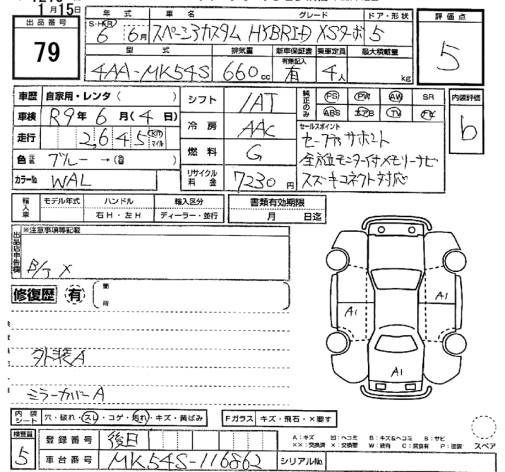 月15日
出品番号 79
年式 S・H・R 6年 6月
車名 グレード スペーシアカスタム HYBRID XSターボ
ドア・形状 5
評価点 5
型式 4AA-MK54S
排気量 660cc
新車保証書 有無記入 有
乗車定員 4人
最大積載量 kg
車歴 自家用・レンタ( )
車検 R9年 6月(4日)
走行 2,645 km マイル
色 ブルー→( )
カラーNo WAL
シフト IAT
冷房 AAC
燃料 G
リサイクル料金 7230円
純正のみ PS PW AW SR
ABS エアB TV ナビ
内装評価 b
セールスポイント
セーフティサポート
全方位モニター付メモリーナビ
スズキコネクト対応
輸入車 モデル年式 ハンドル 右H・左H 輸入区分 ディーラー・並行
書類有効期限 月 日迄
出品店申告欄 ※注意事項等記載
修復歴 有 箇所
A1 A1
外装A
ミラーカバーA
内装シート 穴・破れ・スレ・コゲ・汚れ・キズ・黄ばみ
Fガラス キズ・飛石・×要す
検査員 5
登録番号 後日
車台番号 MK54S-116862
シリアルNo
A:キズ 凹:ヘコミ B:キズ&ヘコミ S:サビ
スペア